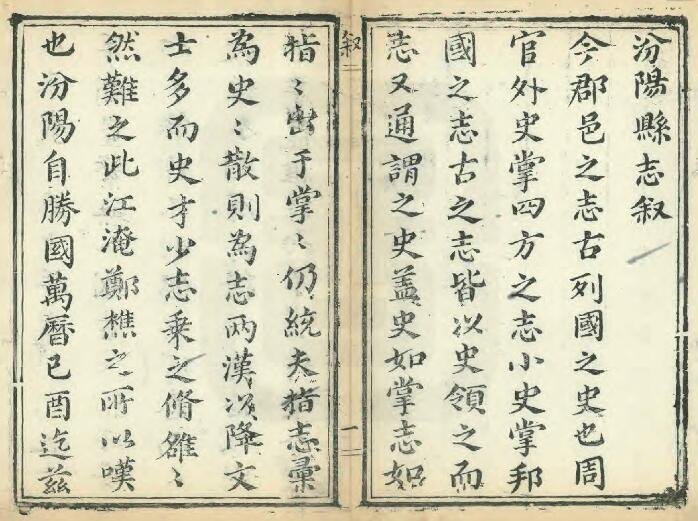 汾陽縣志叙
今郡邑之志古列國之史也周
官外史掌四方之志小史掌邦
國之志古之志皆以史領之而
志又通謂之史盖史如掌志如
叙
一
指〻出于掌〻仍統夫指志彙
為史〻散則為志两漢以降文
士多而史才少志乗之脩雖〻
然難之此江淹鄭樵之所以嘆
也汾陽自勝國萬曆己酉迄兹